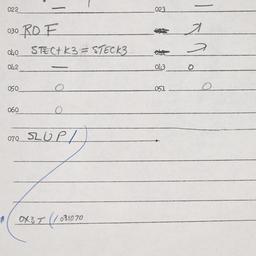 022 — 023 —
030 RDF
040 STECTK3 = STECK3
042 — 043 0
050 0 051 0
060 0
070 SLUP/
0X3T (/ 031070